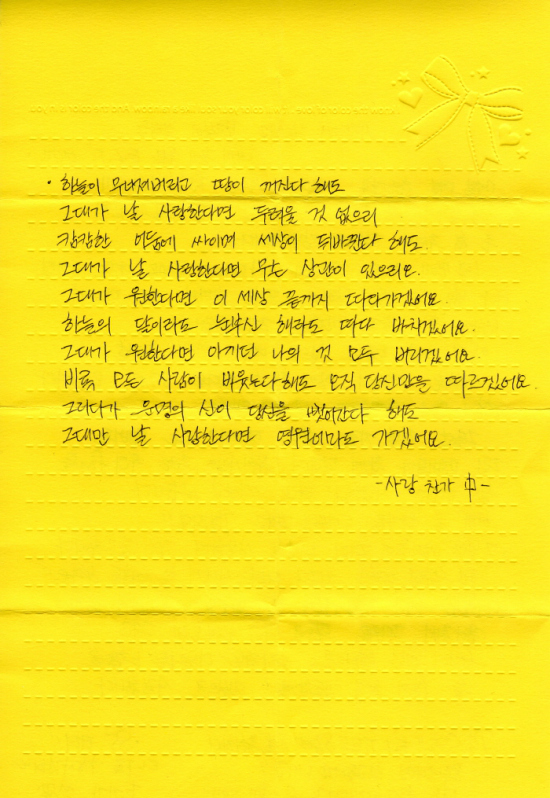 · 하늘이 무너져버리고 땅이 꺼진다 해도
그대가 날 사랑한다면 두려울 것 없으리
캄캄한 어둠에 싸이며 세상이 뒤바뀐다 해도
그대가 날 사랑한다면 무슨 상관이 있으리요.
그대가 원한다면 이 세상 끝까지 따라가겠어요.
하늘의 달이라도 눈부신 해라도 따다 바치겠어요.
그대가 원한다면 아끼던 나의 것 모두 버리겠어요.
비록 모든 사람이 비웃는다해도 오직 당신만을 따르겠어요.
그러다가 운명의 신이 당신을 뺏어간다 해도
그대만 날 사랑한다면 영원이라도 가겠어요.
-사랑 찬가 中-